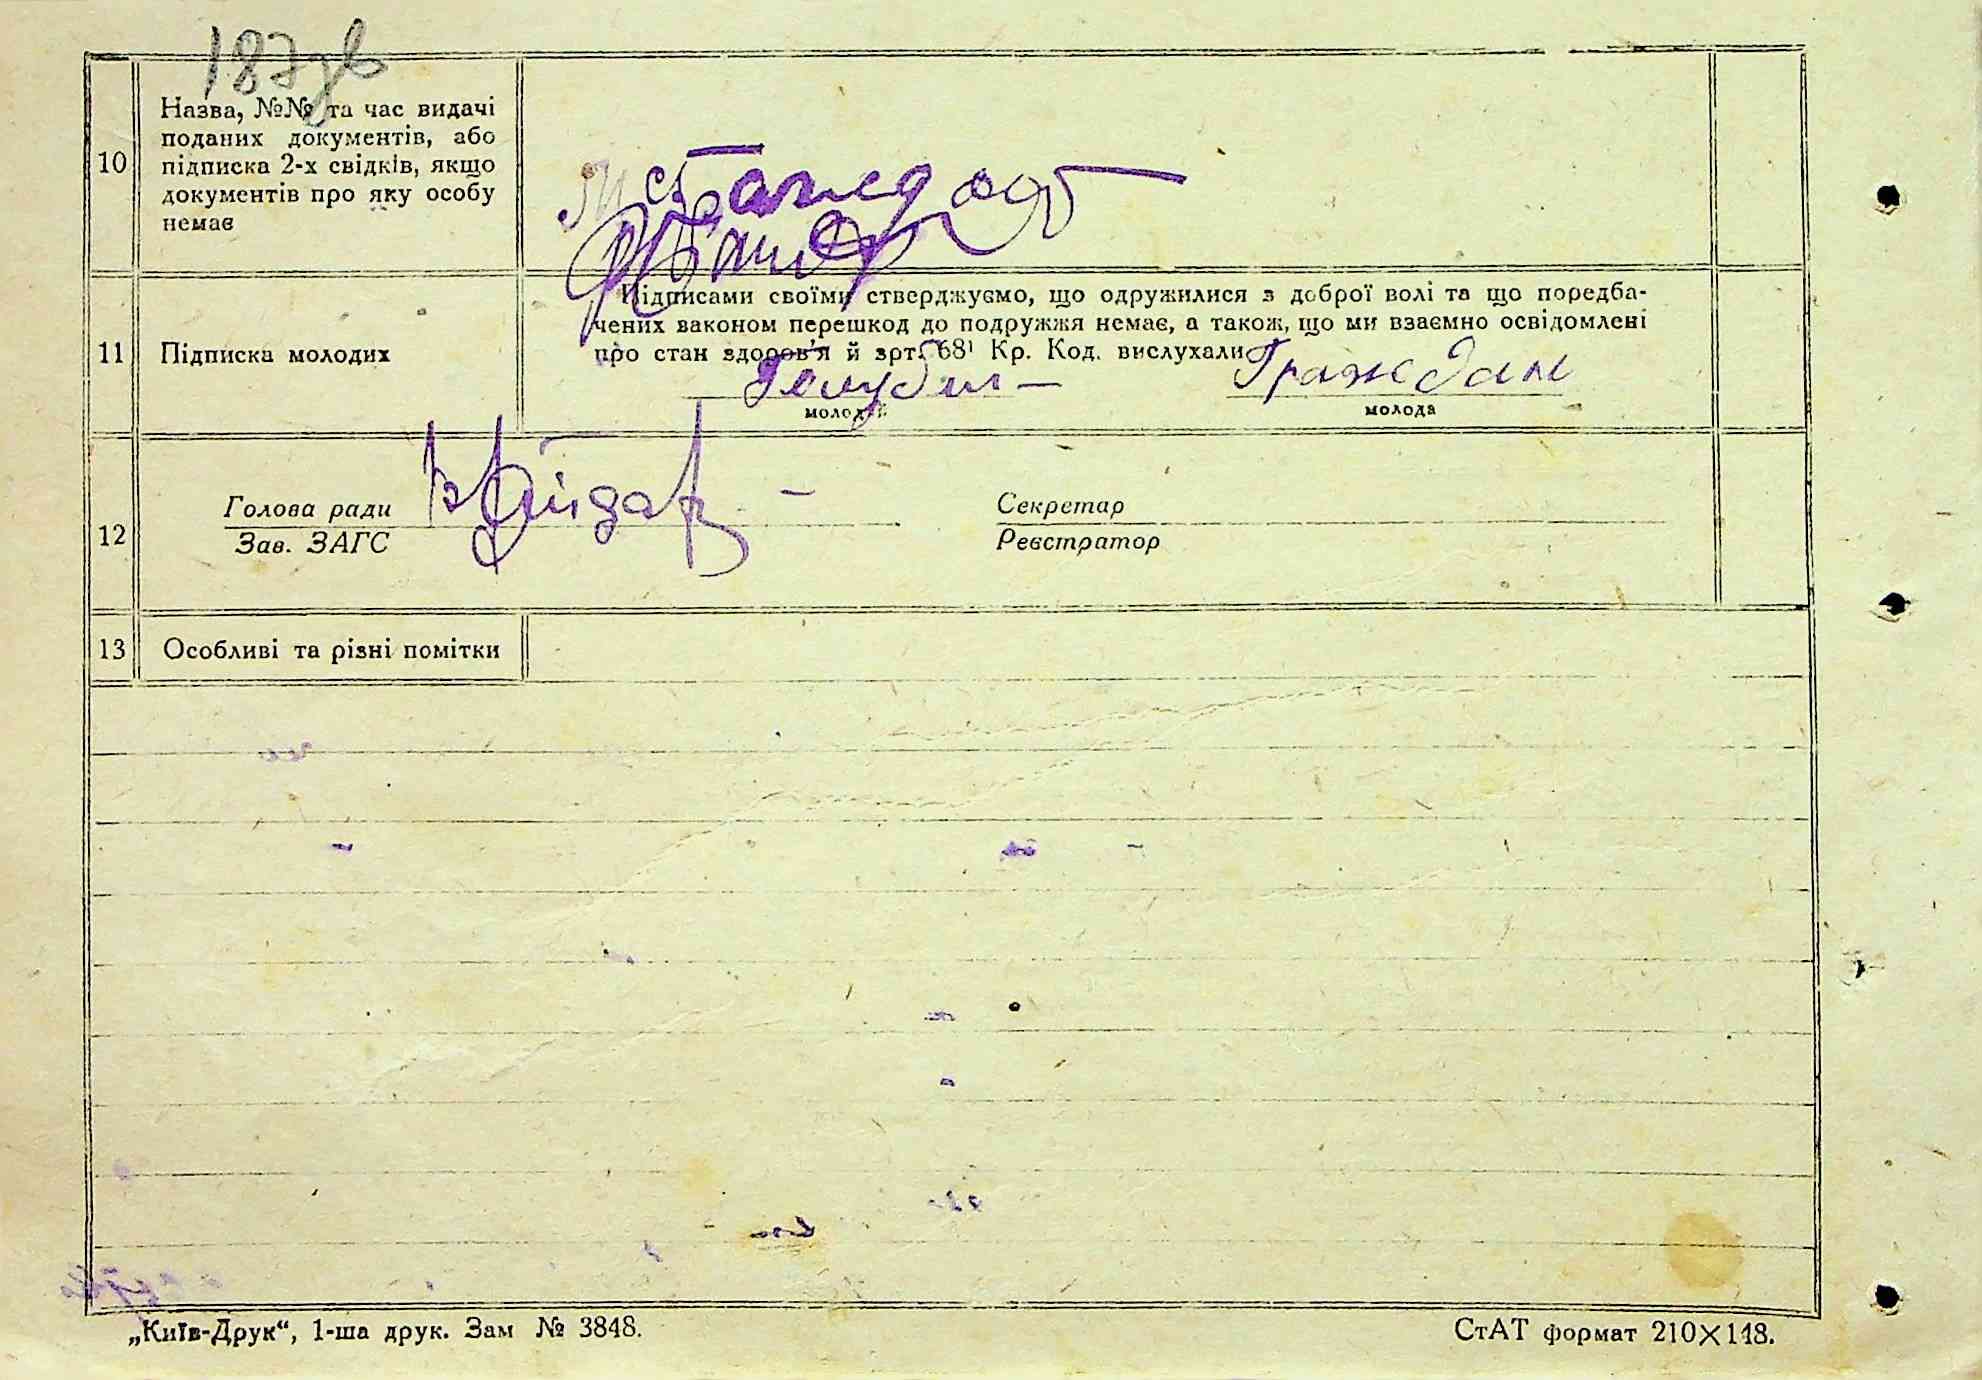 187зв
10
Назва, №№ та час видачі
поданих документів, або
підписка 2-х свідків, якщо
документів про яку особу
немає
11
Підписка молодих
Підписами своїми стверджуємо, що одружилися з доброї волі та що поредба-
чених ваконом перешкод до подружжя немає, а також, що ми взаємно освідомлені
про стан здоров’я й зрт. 68¹ Кр. Код. вислухали
Граждан
молодий
молода
12
Голова ради
Зав. ЗАГС
Секретар
Реєстратор
13
Особливі та різні помітки
„Київ-Друк“, 1-ша друк. Зам № 3848.
СтАТ формат 210×148.